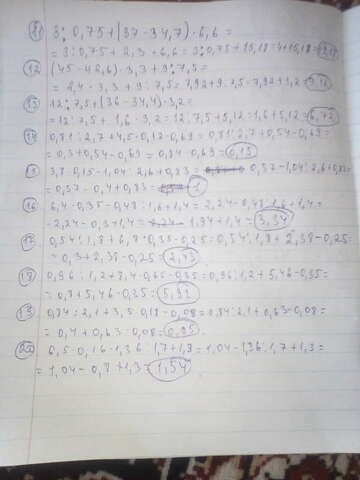 11) 3:0,75+(37-34,7)·6,6=
=3:0,75+2,3·6,6=3:0,75+15,18=4+15,18=19,18
12) (45-42,6)·3,3+9:7,5=
=2,4·3,3+9:7,5=7,92+9:7,5=7,92+1,2=9,12
13) 12:7,5+(36-34,4)·3,2=
=12:7,5+1,6·3,2=12:7,5+5,12=1,6+5,12=6,72
14) 0,81:2,7+4,5·0,12-0,69=0,81:2,7+0,54-0,69=
=0,3+0,54-0,69=0,84-0,69=0,15
15) 3,8·0,15-1,04:2,6+0,83= 0,57-1,04:2,6+0,83=
=0,57-0,4+0,83= 1
16) 6,4·0,35-0,48:1,6+1,4=2,24-0,48:1,6+1,4=
=2,24-0,3+1,4= 1,94+1,4=3,34
17) 0,54:1,8+6,8·0,35-0,25=0,54:1,8+2,38-0,25=
=0,3+2,38-0,25=2,43
18) 0,96:1,2+8,4·0,65-0,35=0,96:1,2+5,46-0,35=
=0,8+5,46-0,35=5,91
19) 0,84:2,1+3,5·0,18-0,08=0,84:2,1+0,63-0,08=
=0,4+0,63-0,08=0,95
20) 6,5·0,16-1,36:1,7+1,3=1,04-1,36:1,7+1,3=
=1,04-0,8+1,3=1,54